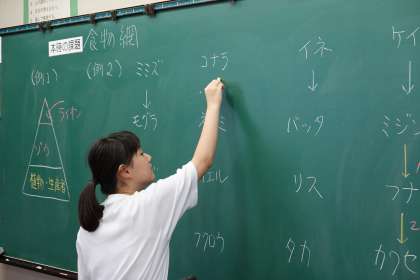 本時の課題
食物網
(例1)
ライオン
ゾウ
植物・生産者
(例2)
ミミズ
↓
モグラ
コナラ
フクロウ
イネ
↓
バッタ
リス
タカ
ケイ
↓
ミジン
↓
フナ
↓
カワセ